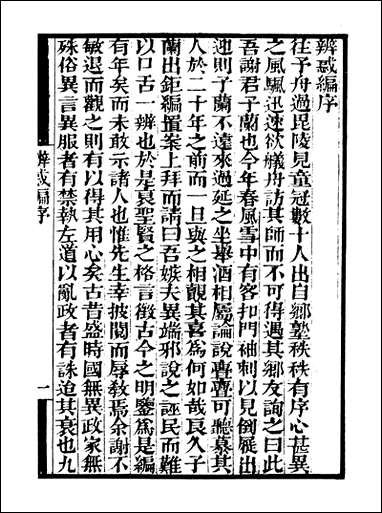 辨惑編序
往予舟過毘陵見童冠數十人出自鄉塾秩秩有序心甚異
之風颿迅速欲艤舟訪其師而不可得遇其鄉友詢之曰此
吾謝君子蘭也今年春風雪中有客扣門袖刺以見倒屣出
迎則子蘭不遠來過延之坐舉酒相屬論說亹亹可聽慕其
人於二十年之前而一旦與之相覿其喜為何如哉良久子
蘭出鉅編置案上拜而請曰吾嫉夫異端邪說之誣民而難
以口舌一辨也於是裒聖賢之格言徵古今之明鑒為是編
有年矣而未敢示諸人也惟先生幸披閱而辱敎焉余謝不
敏退而觀之則有以得其用心矣古昔盛時國無異政家無
殊俗異言異服者有禁執左道以亂政者有誅迨其衰也九
辨惑編序
一